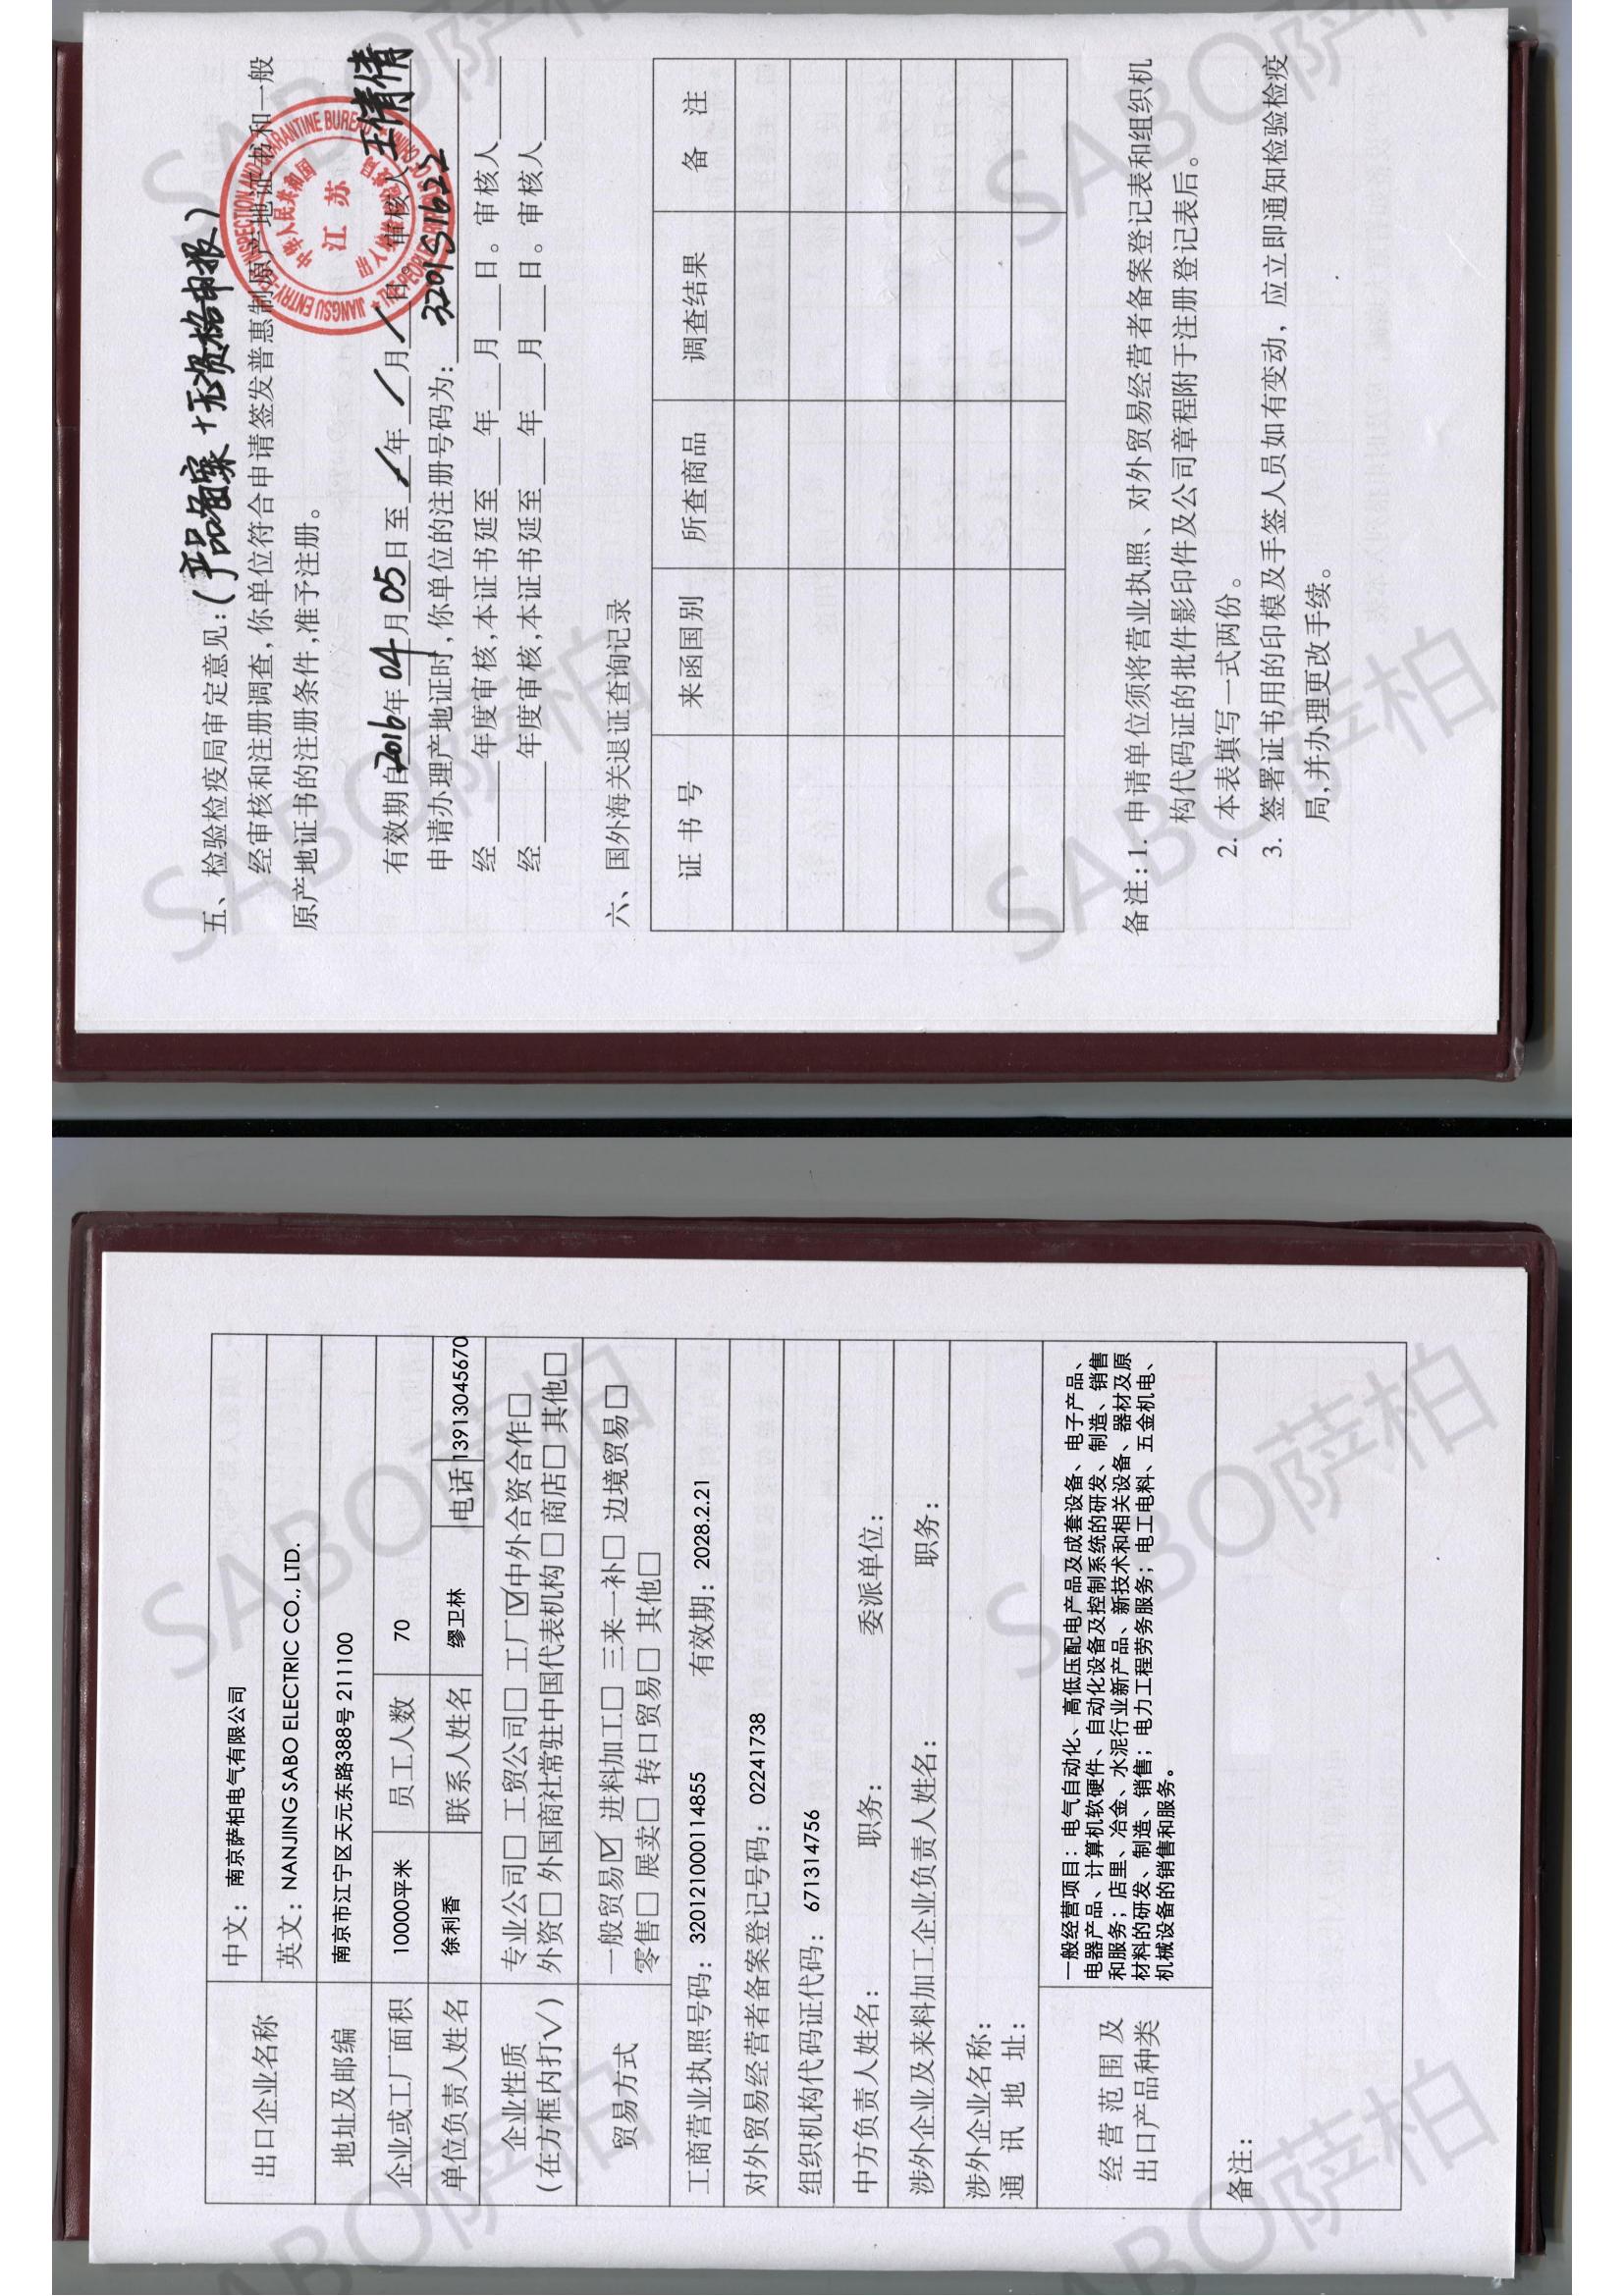 五、检验检疫局审定意见:(产品备案+无资格申报)
经审核和注册调查,你单位符合申请签发普惠制原产地证书和一般
原产地证书的注册条件,准予注册。
有效期自2016年04月05日至/年/月/日。审核人王倩倩
申请办理产地证时,你单位的注册号码为:320151622
经____年度审核,本证书延至____年____月____日。审核人____
经____年度审核,本证书延至____年____月____日。审核人____
JIANGSU ENTRY-EXIT INSPECTION AND QUARANTINE BUREAU
中华人民共和国
江苏
六、国外海关退证查询记录
证书号 来函国别 所查商品 调查结果 备注
备注:1. 申请单位须将营业执照、对外贸易经营者备案登记表和组织机
构代码证的批件影印件及公司章程附于注册登记表后。
2. 本表填写一式两份。
3. 签署证书用的印模及手签人员如有变动，应立即通知检验检疫
局,并办理更改手续。
出口企业名称 中文：南京萨柏电气有限公司
英文：NANJING SABO ELECTRIC CO., LTD.
地址及邮编 南京市江宁区天元东路388号 211100
企业或工厂面积 10000平米 员工人数 70
单位负责人姓名 徐利香 联系人姓名 缪卫林 电话 13913045670
企业性质 专业公司□ 工贸公司□ 工厂☑中外合资合作□
(在方框内打√) 外资□ 外国商社常驻中国代表机构□ 商店□ 其他□
贸易方式 一般贸易☑ 进料加工□ 三来一补□ 边境贸易□
零售□ 展卖□ 转口贸易□ 其他□
工商营业执照号码：320121000114855 有效期：2028.2.21
对外贸易经营者备案登记号码：02241738
组织机构代码证代码：671314756
中方负责人姓名： 职务： 委派单位：
涉外企业及来料加工企业负责人姓名： 职务：
涉外企业名称：
通讯地址：
经营范围及
出口产品种类
一般经营项目：电气自动化、高低压配电产品及成套设备、电子产品、
电器产品、计算机软硬件、自动化设备及控制系统的研发、制造、销售
和服务；店里、冶金、水泥行业新产品、新技术和相关设备、器材及原
材料的研发、制造、销售；电力工程劳务服务；电工电料、五金机电、
机械设备的销售和服务。
备注：
SABO萨柏
SABO萨柏
SABO萨柏
SABO萨柏
SABO萨柏
SABO萨柏
SABO萨柏
SABO萨柏